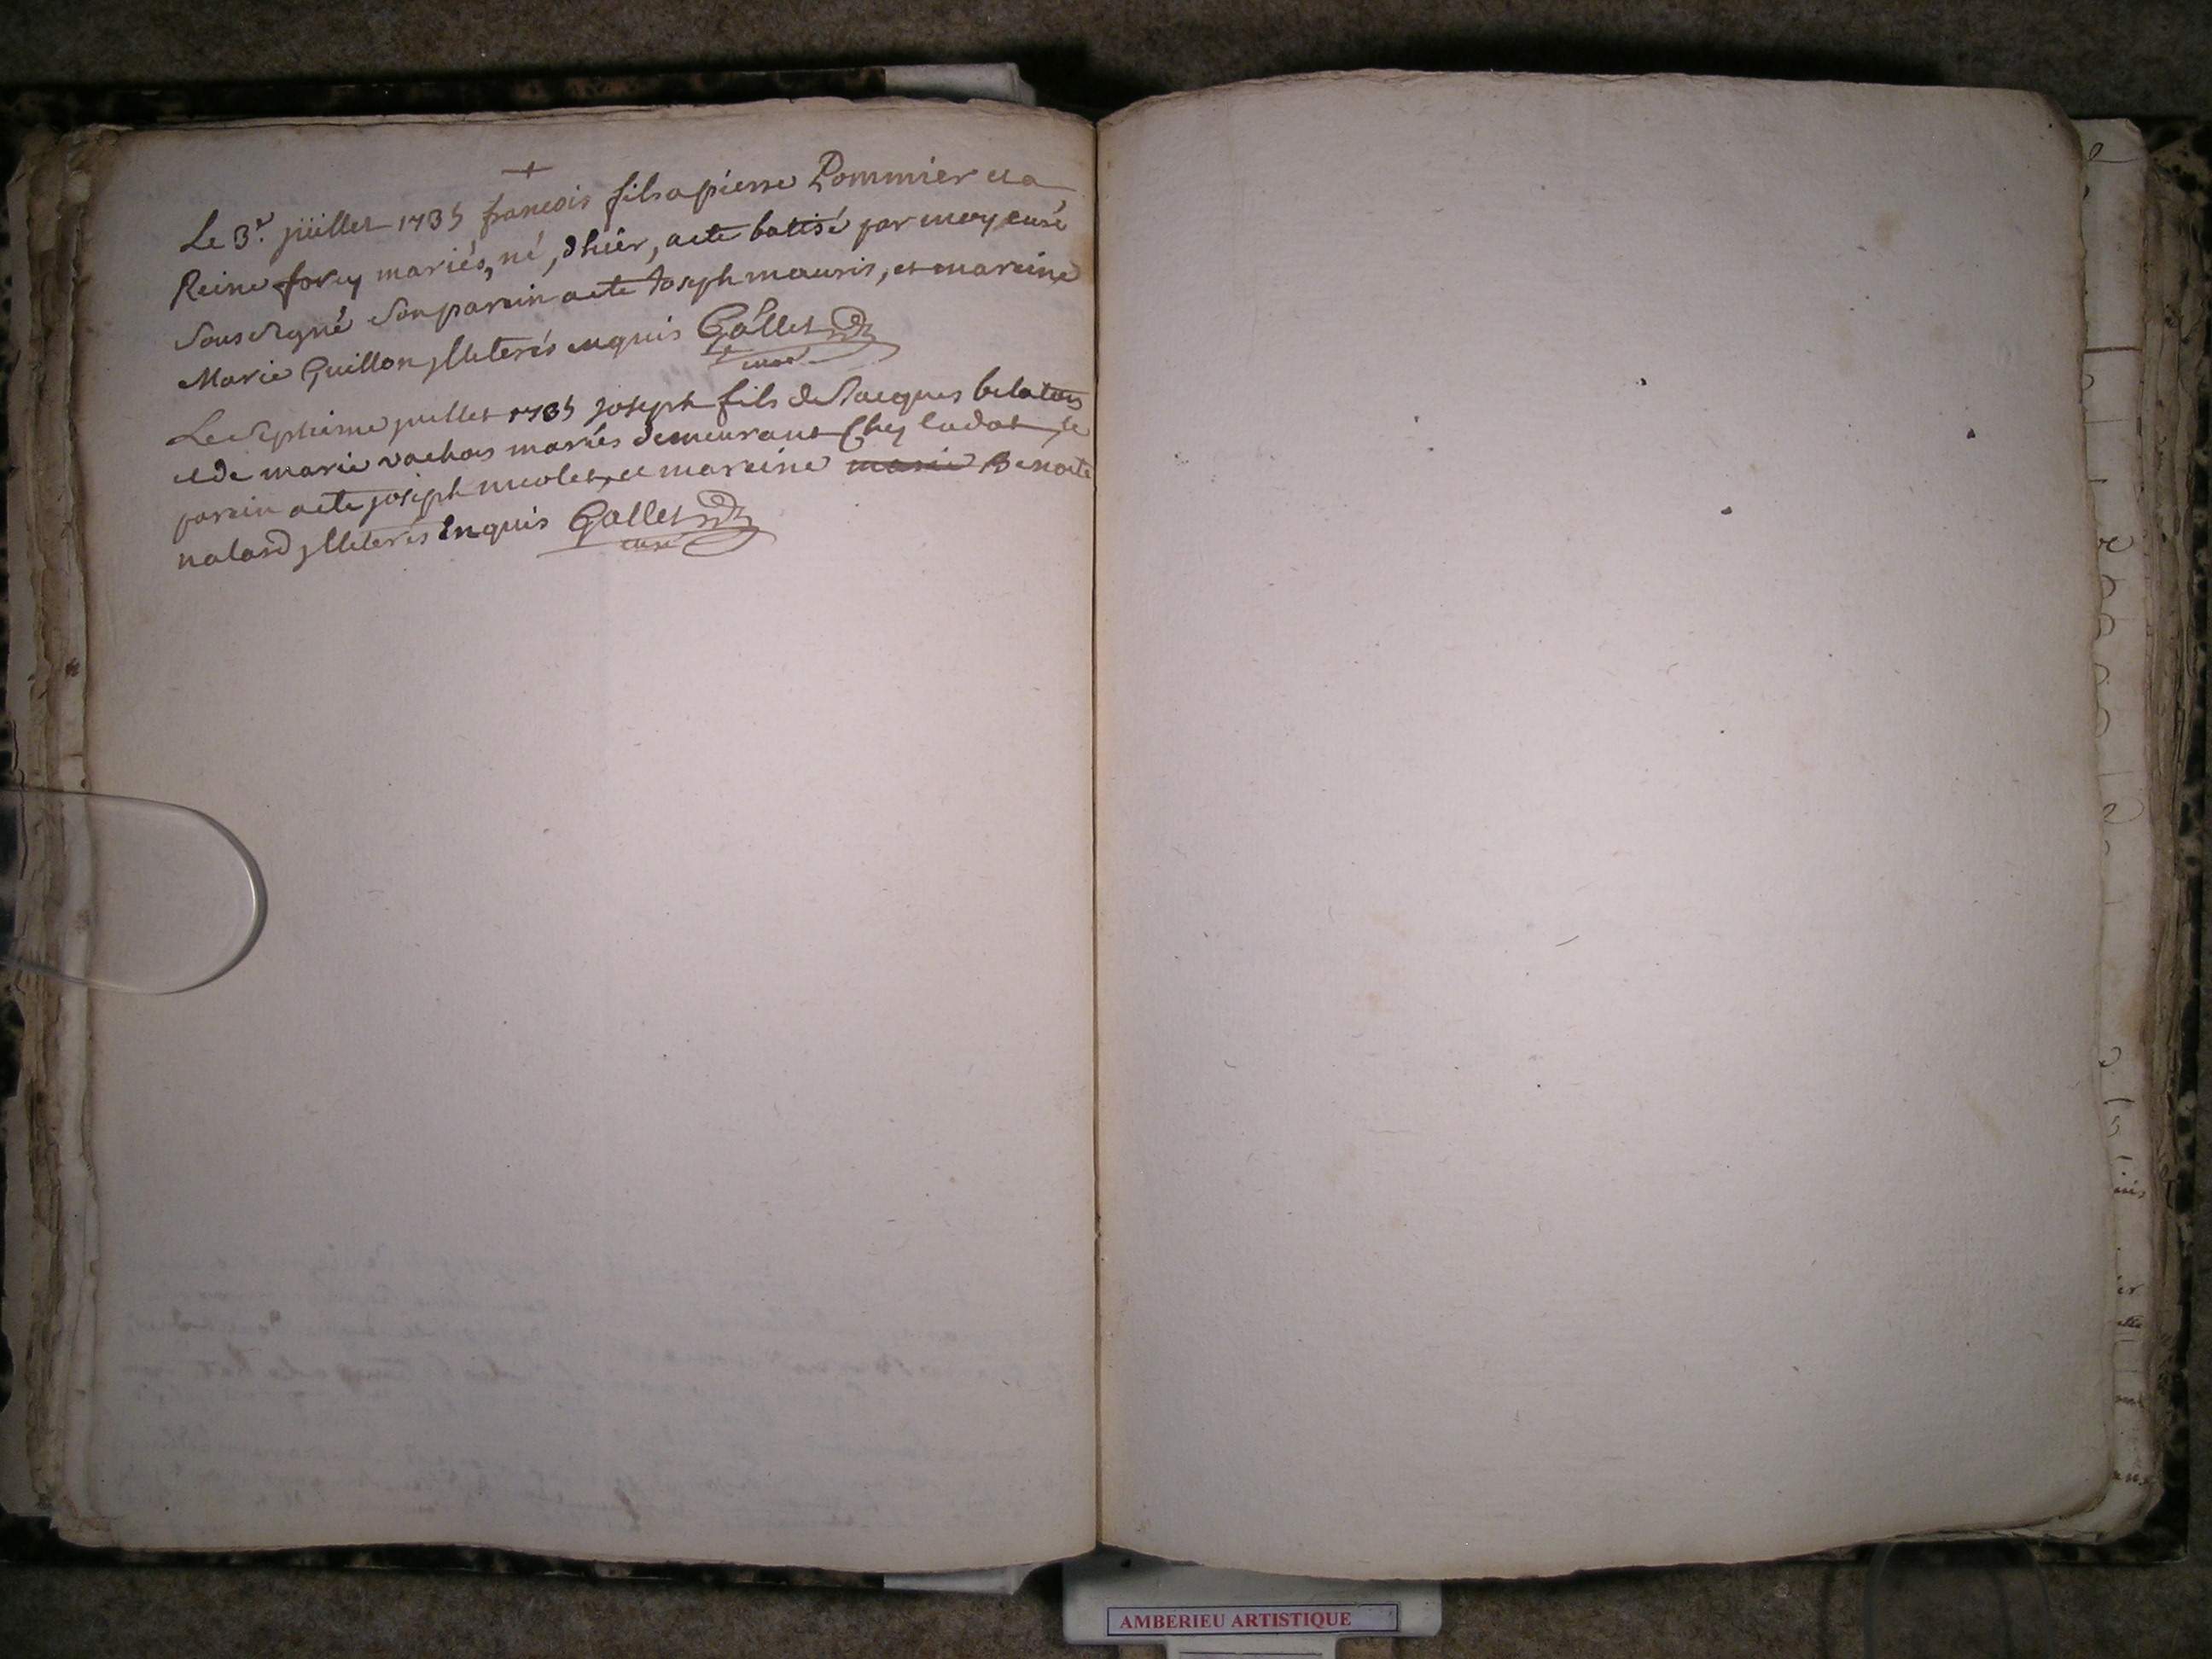 +
Le 3.e jüillet 1735 francois fils a pierre Pommier et a
Reine forey mariés, né, d'hiêr, aeté batisé par moy curé
Sousigné Son parein aeté Joseph mauris, et mareine
Marie Guillon jlleterés enquis Gallet
curé
Le Septieme juillet 1735 joseph fils de Jacques belatons
et de marie vachas mariés demeurant Chez ladat, le
parein aeté joseph nicolet, et mareine marie Benoite
nalard jlleterés Enquis Gallet
curé
AMBERIEU ARTISTIQUE